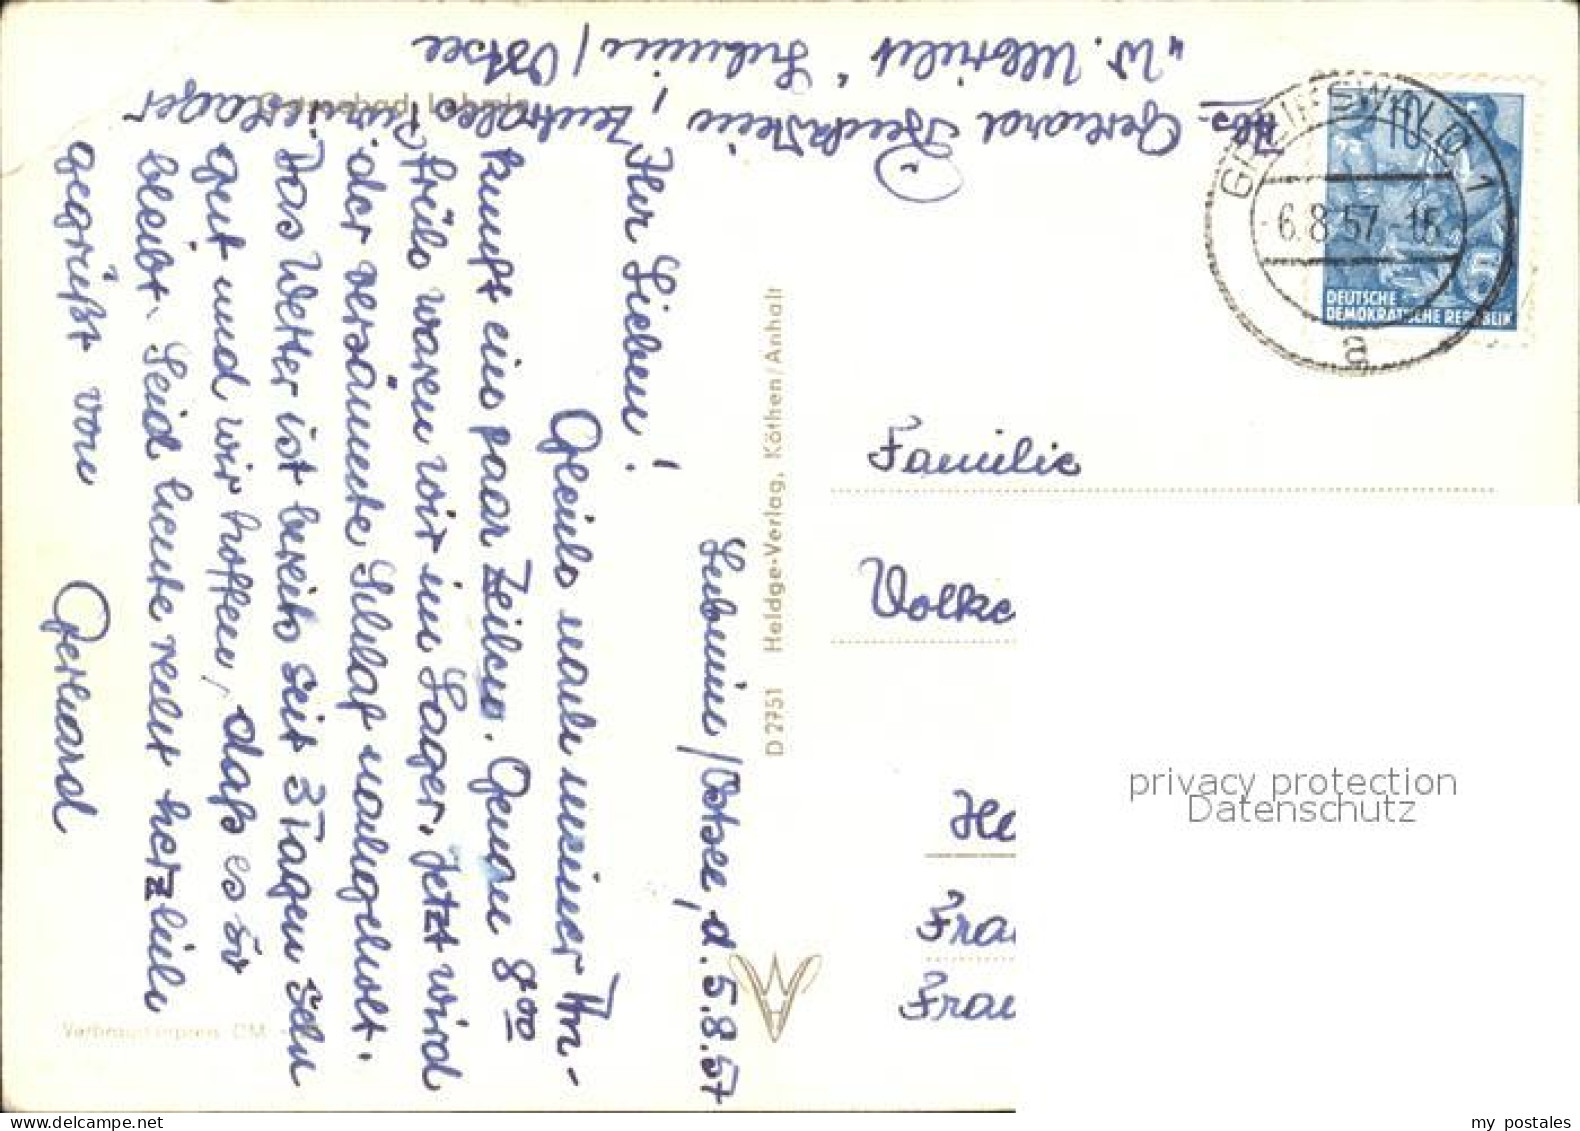 Lubmin/Ostsee, d. 5.8.57
Ihr Lieben!
Gleich nach meiner An-
kunft ein paar Zeilen. Genau 8 00
früh waren wir im Lager. Jetzt wird
der versäumte Schlaf nachgeholt.
Das Wetter ist bereits seit 3 Tagen sehr
gut und wir hoffen, daß es so
bleibt. Seid heute recht herzlich
gegrüßt von
Gerhard
Abs. Gerhard
, Zentrales Pionierlager
"W. Ulbricht" Lubmin/Ostsee
Ostseebad Lubmin
Verbraucherpreis DM
D 2751 Heldge-Verlag, Köthen/Anhalt
GREIFSWALD 1
-6.8.57.-15
a
10
DEUTSCHE
DEMOKRATISCHE REPUBLIK
Familie
Volke
He
Frau
Frau
privacy protection
Datenschutz
my postales